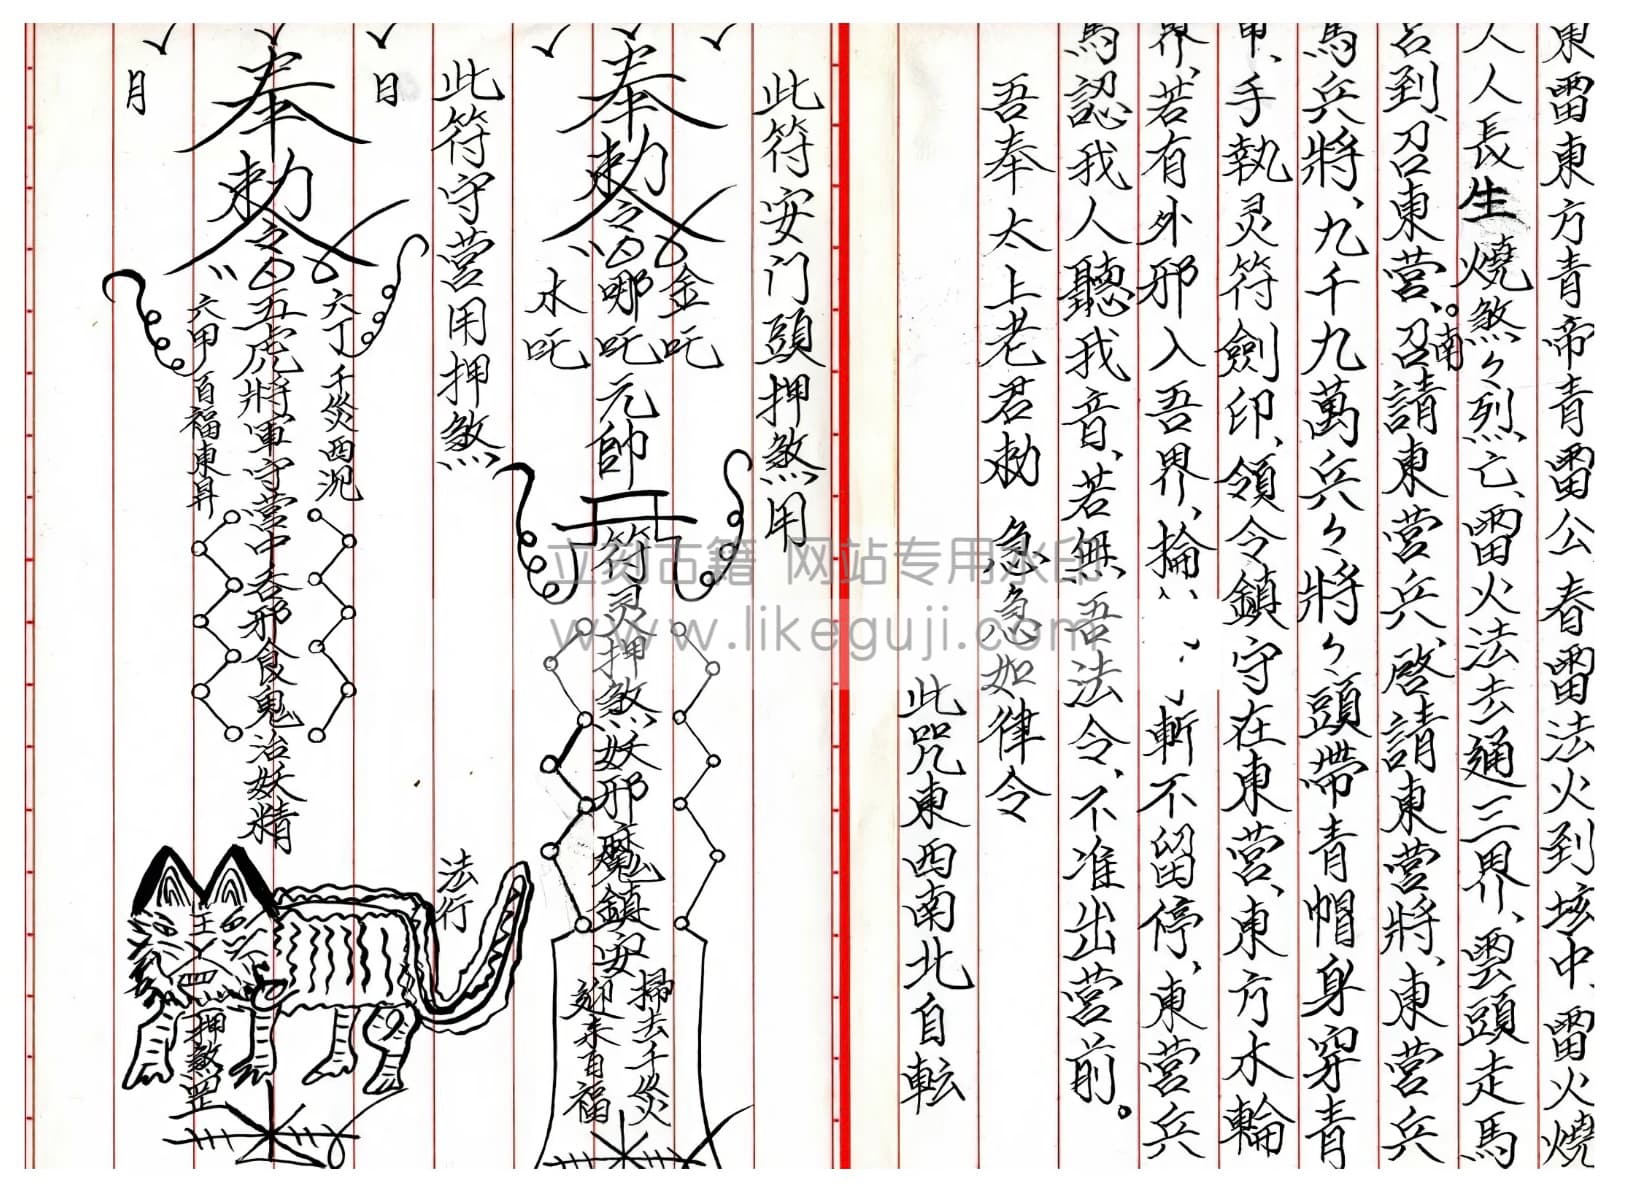 東雷東方青帝青雷公春雷法火到垓中、雷火燒
人人長生燒煞々烈亡、雷火法去通三界、雲頭走馬
召到召東营。南召請東营兵、啓請東营將、東营兵
馬兵將、九千九萬兵々將々頭帶青帽身穿青
甲、手執灵符劍印、領令鎮守在東营、東方水輪
界、若有外邪入吾界、掄 斬不留停、東营兵
馬認我人聽我音、若無吾法令、不准出营前。
吾奉太上老君勅 急急如律令
此咒東西南北自転
此符安门頭押煞用
奉勅令
金吒
哪吒元帥符灵押煞妖邪魔鎮安
水吒
掃去千災
迎来百福
此符守营用押煞
日
月
奉勅令
六丁千災西況
五虎將軍守营中吞邪食鬼治妖精
六甲百福東昇
法行
王
押煞罡
立刻古籍 网站专用水印
www.likeguji.com